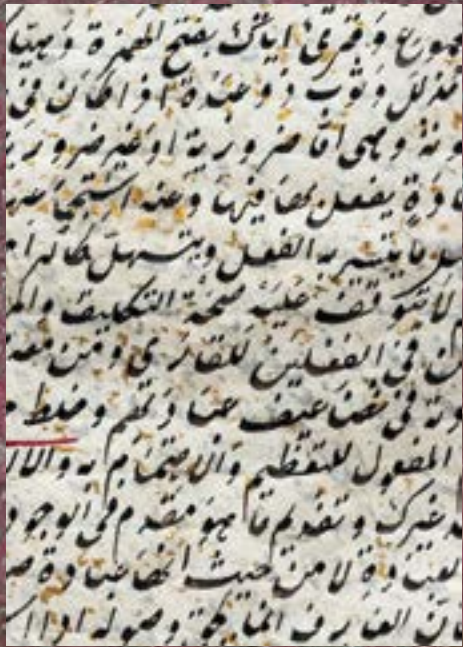 وقرئ اياك بفتح الهمزة وهياك
مذلل وثوب ذو عبدة اذا كان في
وهى اما ضرورية او غير ضرورية
يفعل بها فيها وعند استجما
ما يتيسر به الفعل ويتسهل كالرا
لا يتوقف عليه صحة التكليف والم
في الفعلين للقارئ ومن معه
في تضاعيف عبادتهم وخلط
المفعول للتعظيم والاهتمام به والدلا
غيرك وتقديم ما هو مقدم في الوجود
العبادة لا من حيث انها عبادة صد
العارف انما يحق وصوله اذا ا